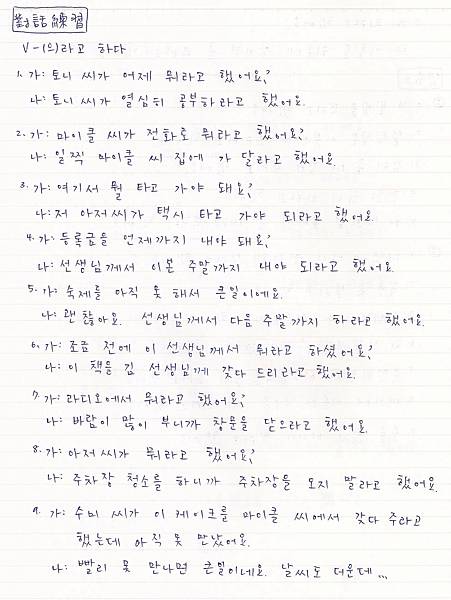 對話練習
V-(으)라고 하다
1. 가: 토니 씨가 어제 뭐라고 했어요?
나: 토니 씨가 열심히 공부하라고 했어요.
2. 가: 마이클 씨가 전화로 뭐라고 했어요?
나: 일찍 마이클 씨 집에 가 달라고 했어요.
3. 가: 여기서 뭘 타고 가야 돼요?
나: 저 아저씨가 택시 타고 가야 되라고 했어요.
4. 가: 등록금을 언제까지 내야 돼요?
나: 선생님께서 이본 주말까지 내야 되라고 했어요.
5. 가: 숙제를 아직 못 해서 큰일이에요.
나: 괜찮아요. 선생님께서 다음 주말까지 하라고 했어요.
6. 가: 조금 전에 이 선생님께서 뭐라고 하셨어요?
나: 이 책을 김 선생님께 갖다 드리라고 했어요.
7. 가: 라디오에서 뭐라고 했어요?
나: 바람이 많이 부니까 창문을 닫으라고 했어요.
8. 가: 아저씨가 뭐라고 했어요?
나: 주차장 청소를 하니까 주차장을 오지 말라고 했어요.
9. 가: 수비 씨가 이 케이크를 마이클 씨에서 갖다 주라고
했는데 아직 못 만났어요.
나: 빨리 못 만나면 큰일이네요. 날씨도 더운데...